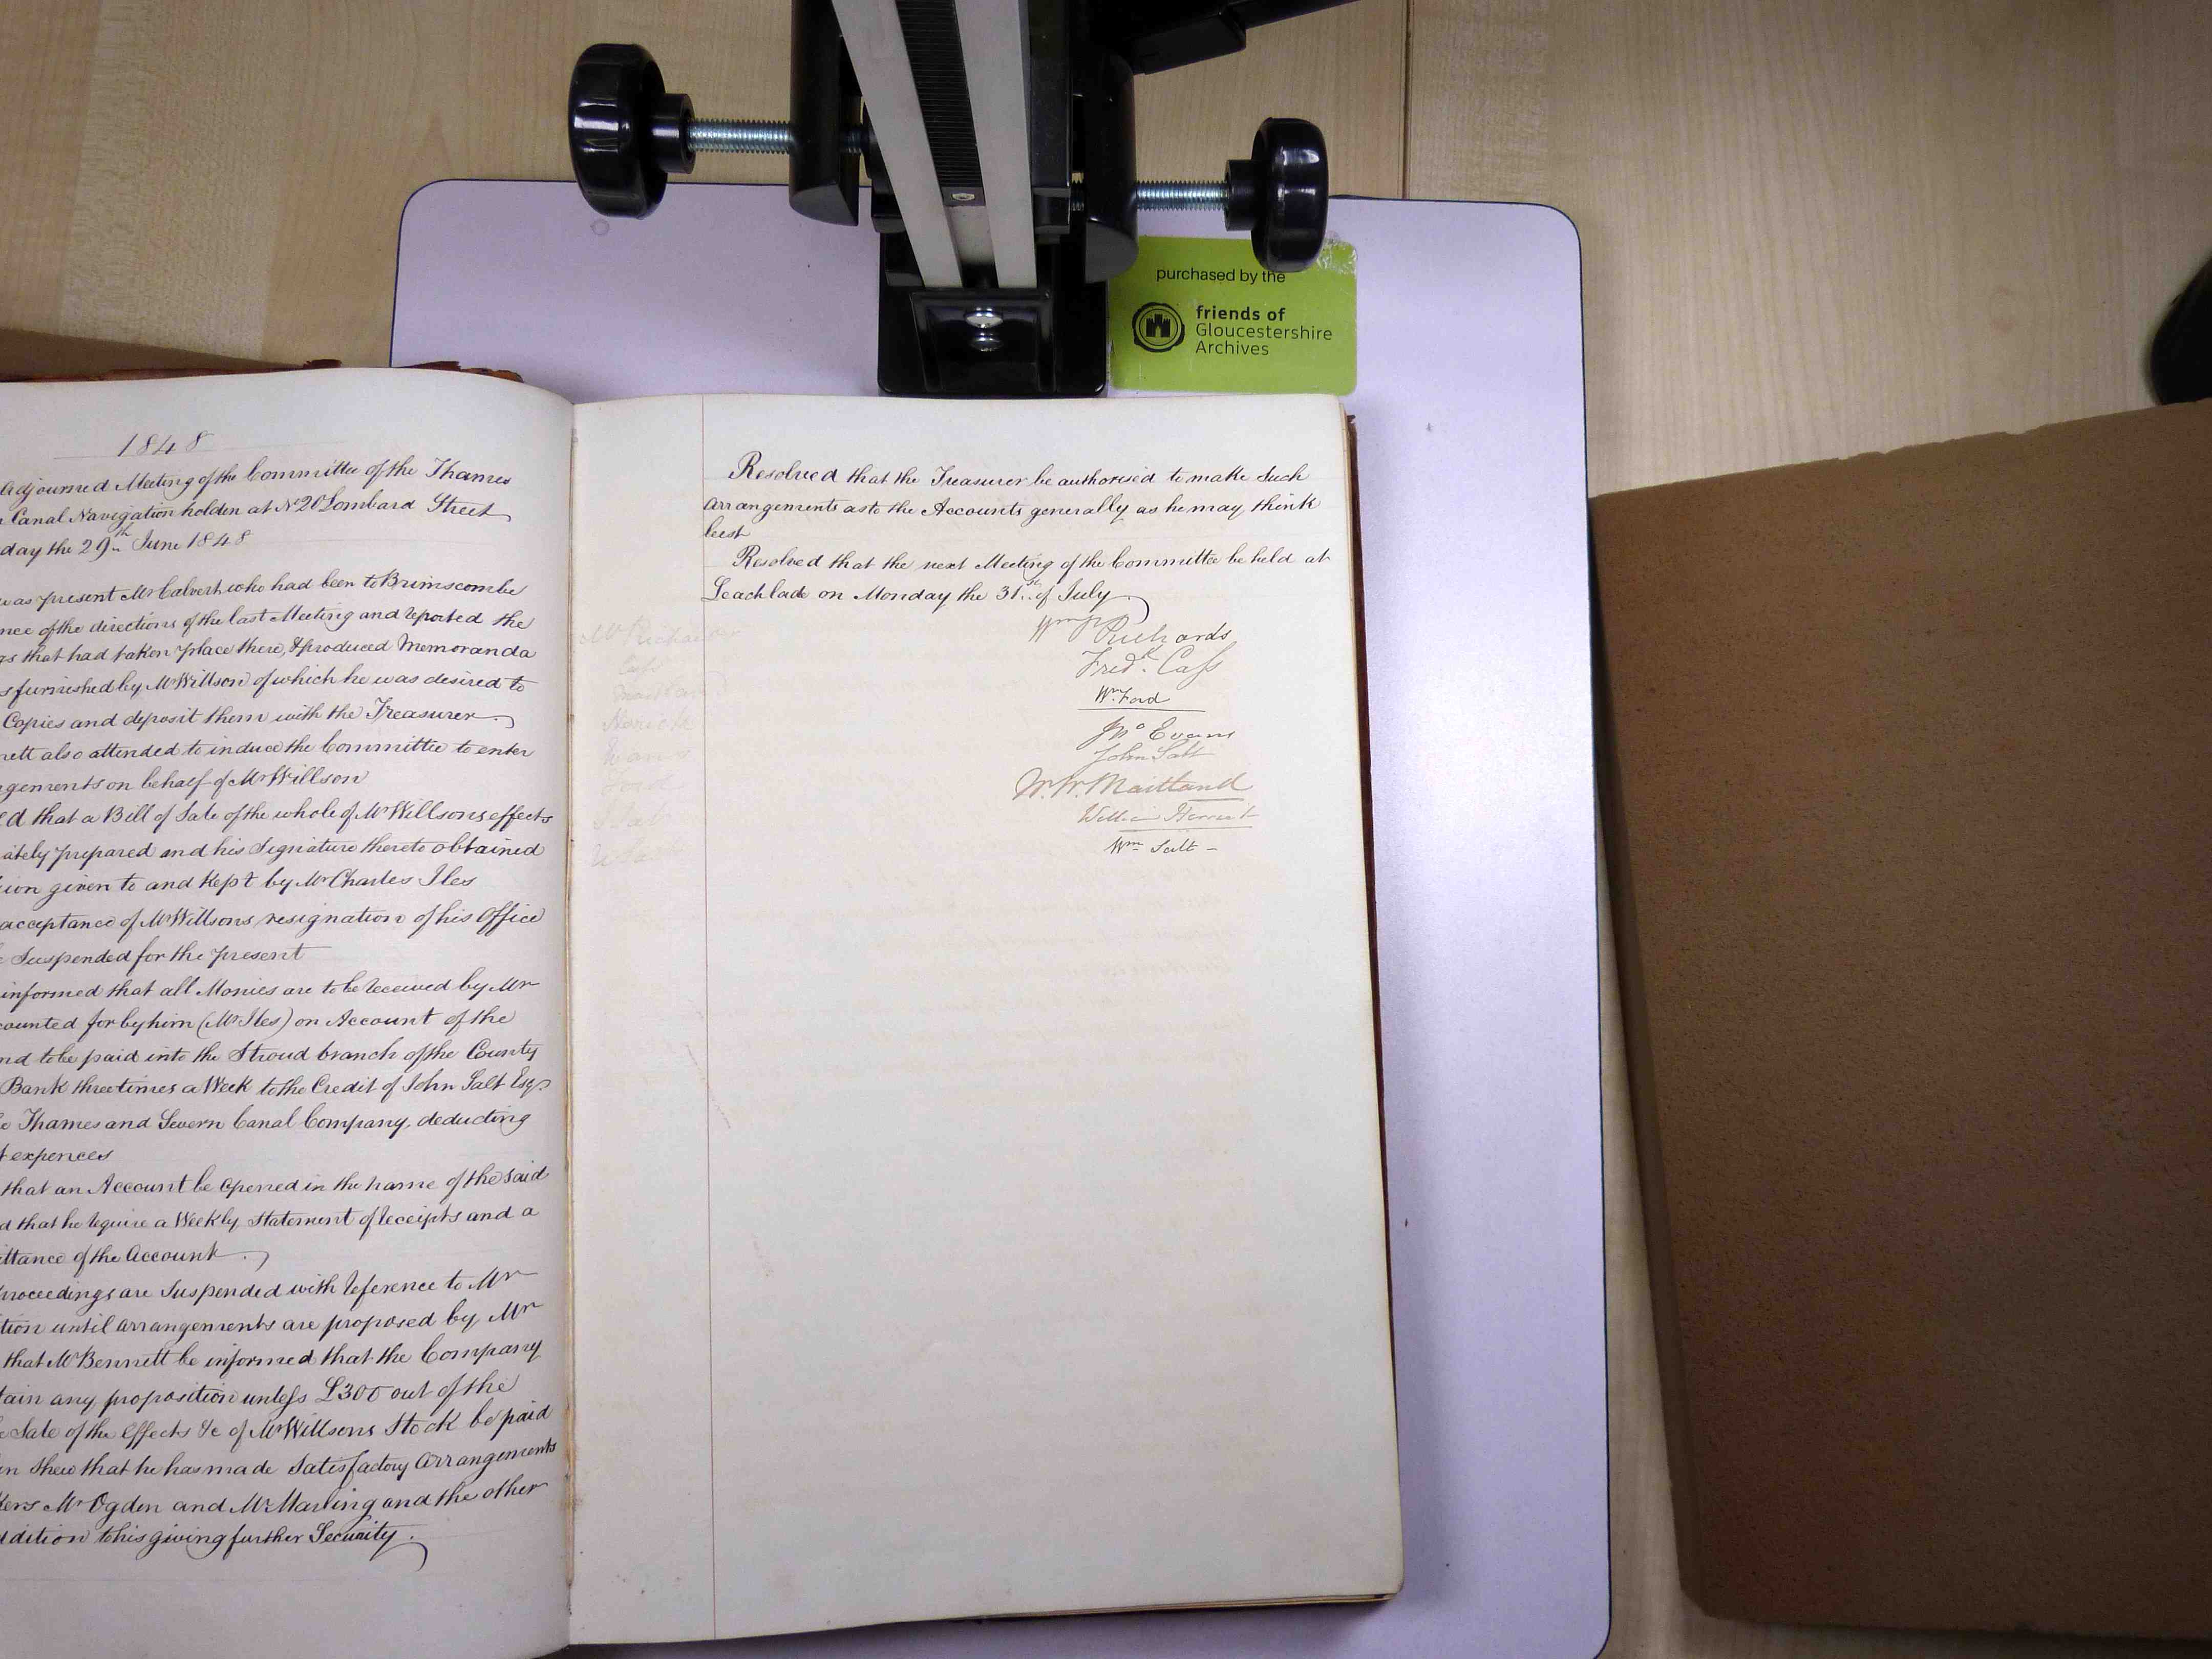 purchased by the
friends of
Gloucestershire
Archives
1848
Adjourned Meeting of the Committee of the Thames
Canal Navigation holden at No 20 Lombard Street
day the 29th June 1848
was present Mr Calvert who had been to Brimscombe
nce of the directions of the last Meeting and reported the
gs that had taken place there, & produced Memoranda
s furnished by Mr Willson of which he was desired to
Copies and deposit them with the Treasurer.
nett also attended to induce the Committee to enter
gements on behalf of Mr Willson
ed that a Bill of Sale of the whole of Mr Willsons effects
iately prepared and his Signature thereto obtained
ion given to and kept by Mr Charles Iles
acceptance of Mr Willsons resignation of his Office
e Suspended for the present
informed that all Monies are to be received by Mr
counted for by him (Mr Iles) on Account of the
nd to be paid into the Stroud branch of the County
Bank three times a Week to the Credit of John Salt Esqr
e Thames and Severn Canal Company, deducting
expences
that an Account be opened in the name of the said
d that he require a Weekly Statement of receipts and a
ittance of the Account.
Proceedings are Suspended with reference to Mr
tion until arrangements are proposed by Mr
that Mr Bennett be informed that the Company
tain any proposition unless £300 out of the
e Sale of the Effects &c of Mr Willsons Stock be paid
n shew that he has made Satisfactory Arrangements
kers Mr Ogden and Mr Marling and the other
ddition to his giving further Security.
Resolved that the Treasurer be authorised to make Such
arrangements as to the Accounts generally as he may think
best
Resolved that the next Meeting of the Committee be held at
Leachlade on Monday the 31st of July.
Richards
Fredk. Cass
Wm Ford
Jno Evans
John Salt
W. W. Maitland
William Herrick
Wm Salt
Mr Richards
Cass
Maitland
Herrick
Evans
Ford
Salt